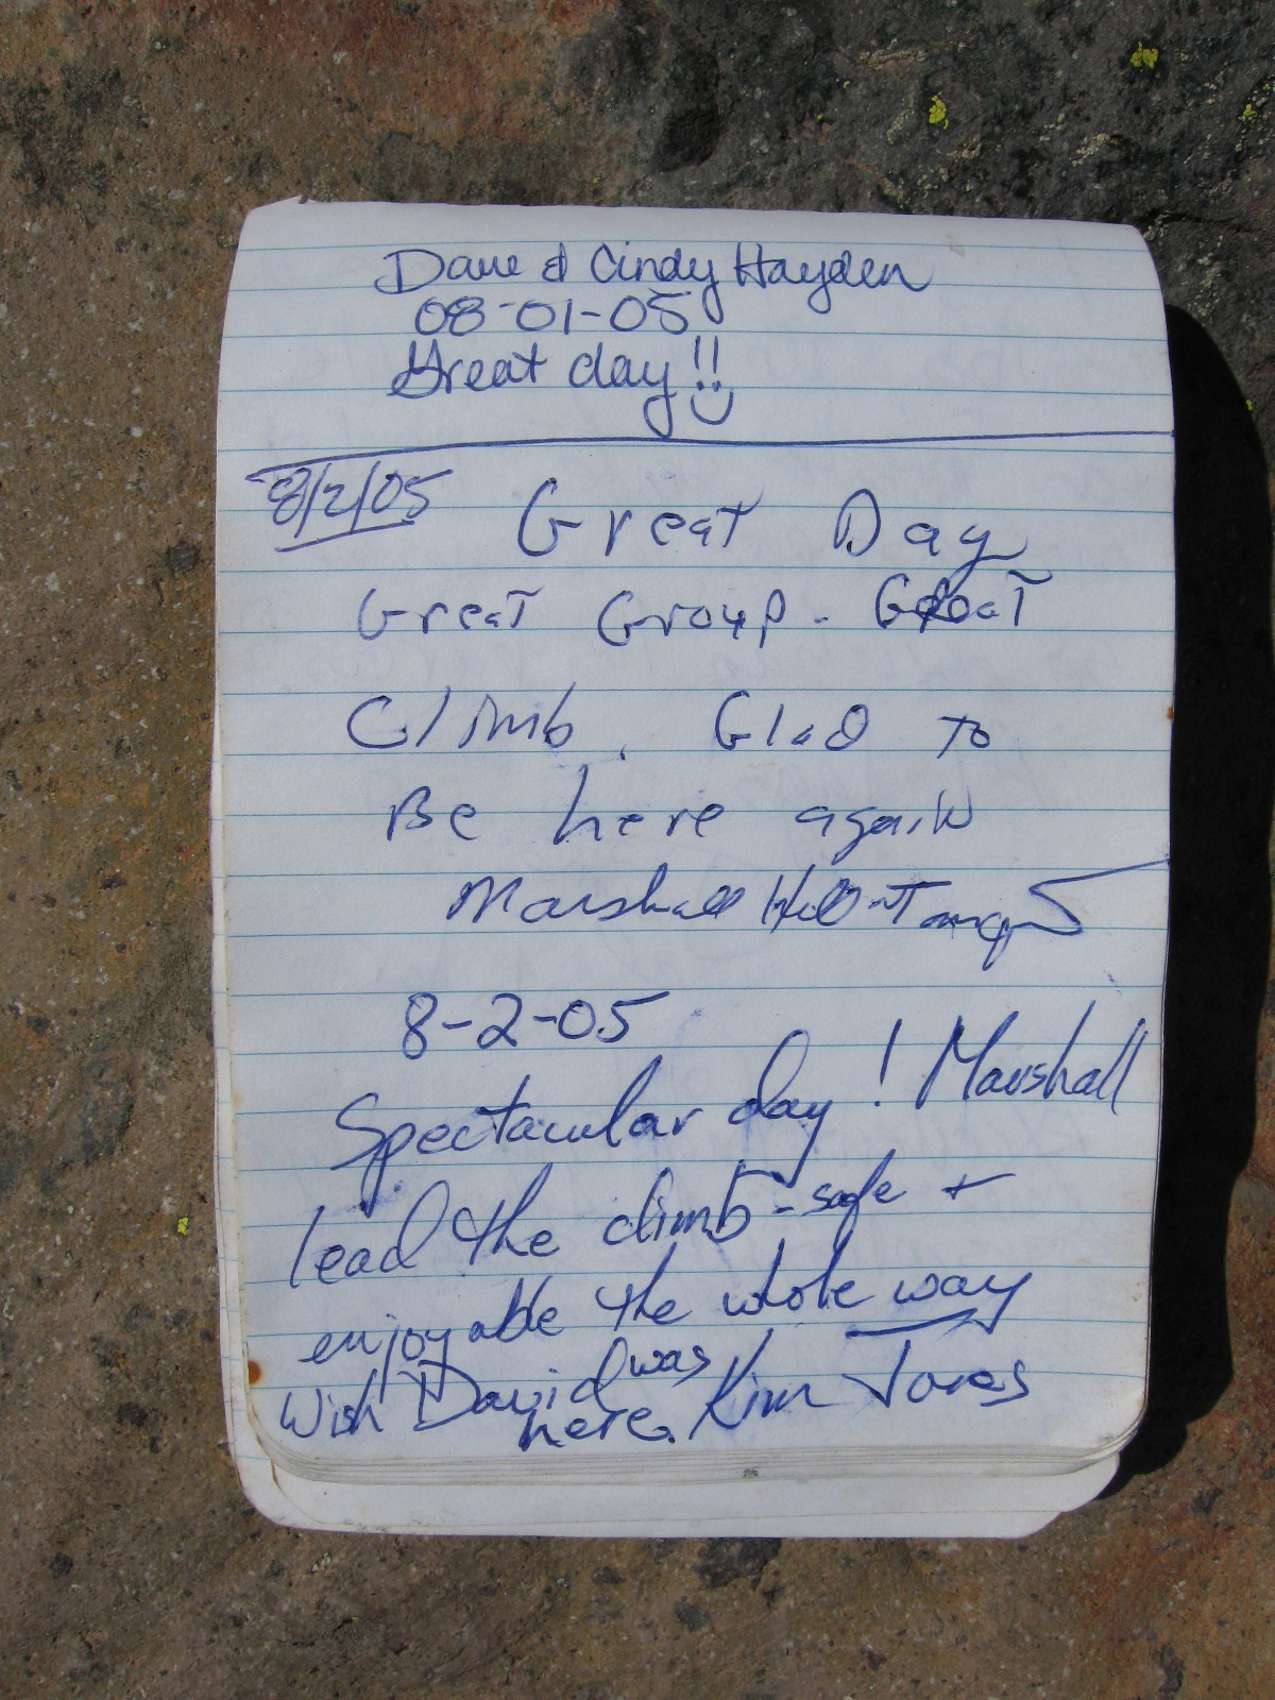 Dave & Cindy Hayden
08-01-05
Great day!!
8/2/05
Great Day
Great Group - Great
Climb. Glad to
Be here again
Marshall
8-2-05
Spectacular day! Marshall
lead the climb - safe +
enjoyable the whole way
Wish David was
here. Kim Jones